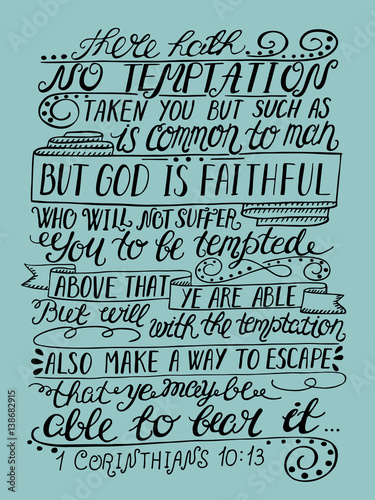 there hath
NO TEMPTATION
TAKEN YOU BUT SUCH AS
is common to man
BUT GOD IS FAITHFUL
WHO WILL NOT SUFFER
You to be tempted
ABOVE THAT YE ARE ABLE
But will with the temptation
ALSO MAKE A WAY TO ESCAPE
that ye may be
able to bear it...
1 CORINTHIANS 10:13
Adobe Stock | #138682915